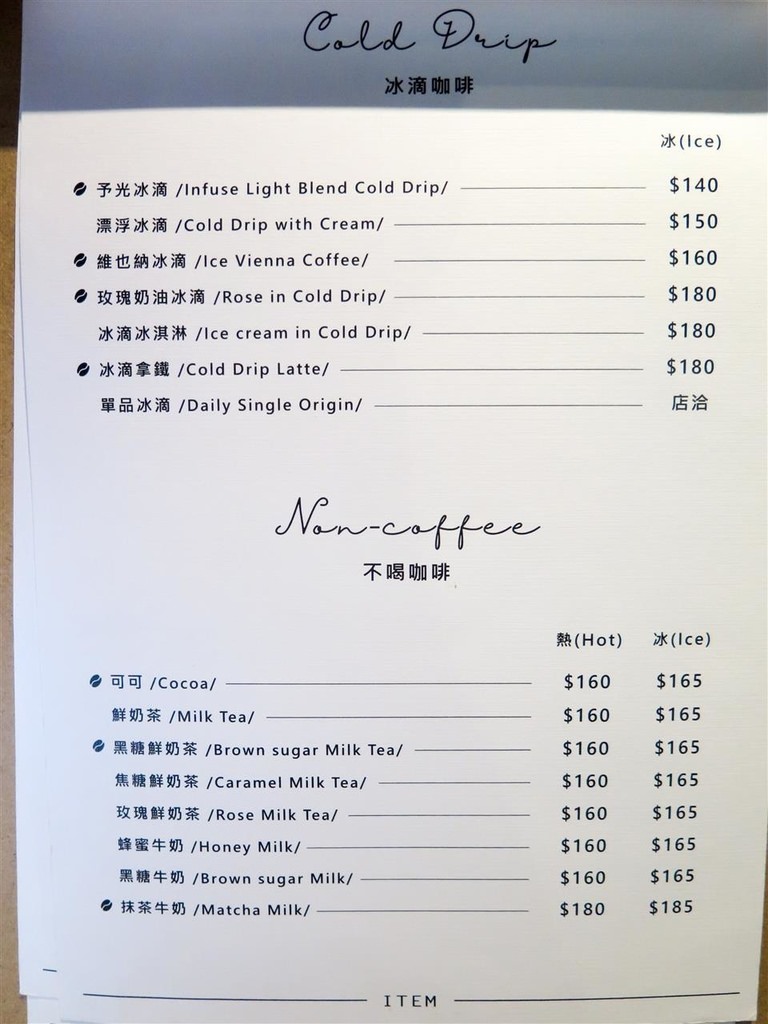 Cold Drip
冰滴咖啡
冰(Ice)
予光冰滴 /Infuse Light Blend Cold Drip/ $140
漂浮冰滴 /Cold Drip with Cream/ $150
維也納冰滴 /Ice Vienna Coffee/ $160
玫瑰奶油冰滴 /Rose in Cold Drip/ $180
冰滴冰淇淋 /Ice cream in Cold Drip/ $180
冰滴拿鐵 /Cold Drip Latte/ $180
單品冰滴 /Daily Single Origin/ 店洽
Non-coffee
不喝咖啡
熱(Hot) 冰(Ice)
可可 /Cocoa/ $160 $165
鮮奶茶 /Milk Tea/ $160 $165
黑糖鮮奶茶 /Brown sugar Milk Tea/ $160 $165
焦糖鮮奶茶 /Caramel Milk Tea/ $160 $165
玫瑰鮮奶茶 /Rose Milk Tea/ $160 $165
蜂蜜牛奶 /Honey Milk/ $160 $165
黑糖牛奶 /Brown sugar Milk/ $160 $165
抹茶牛奶 /Matcha Milk/ $180 $185
ITEM